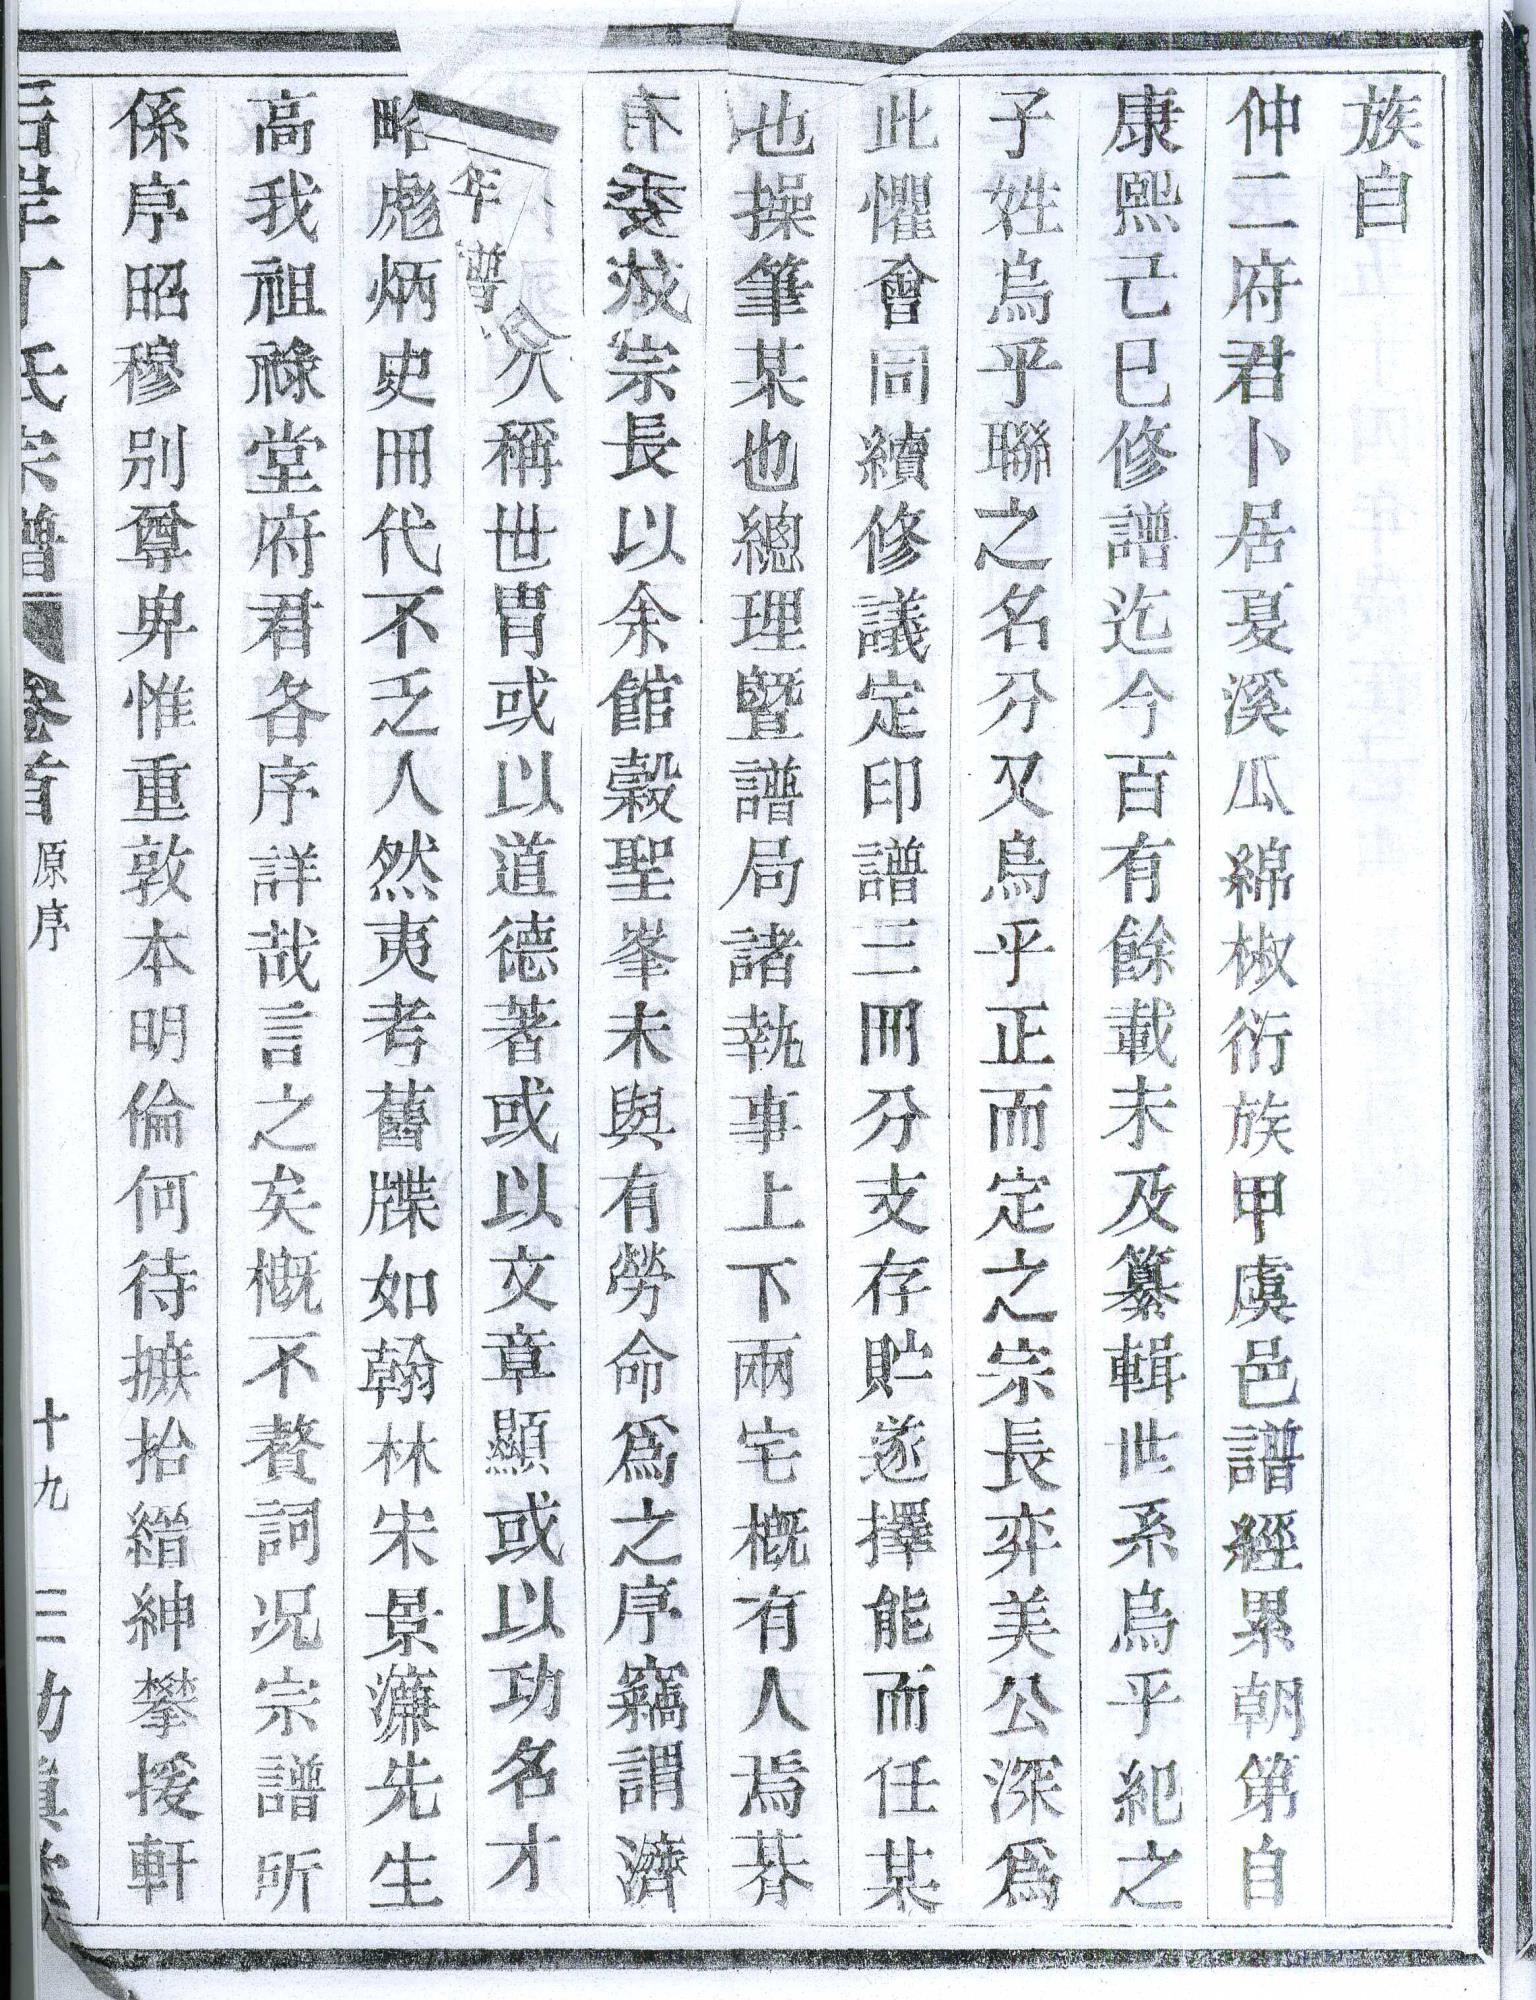 族自
仲二府君卜居夏溪瓜綿椒衍族甲虞邑譜經累朝第自
康熙己巳修譜迄今百有餘載未及纂輯世系烏乎紀之
子姓烏乎聯之名分又烏乎正而定之宗長弈美公深爲
此懼會同續修議定印譜三冊分支存貯遂擇能而任某
也操筆某也總理曁譜局諸執事上下兩宅概有人焉朞
有委城宗長以余館穀聖峯未與有勞命爲之序竊謂濟
人稱世胄或以道德著或以文章顯或以功名才
略彪炳史冊代不乏人然夷考舊牒如翰林宋景濂先生
高我祖祿堂府君各序詳哉言之矣概不贅詞况宗譜所
係序昭穆别尊卑惟重敦本明倫何待摭拾縉紳攀援軒
后岸丁氏宗譜 卷首 原序 十九 三